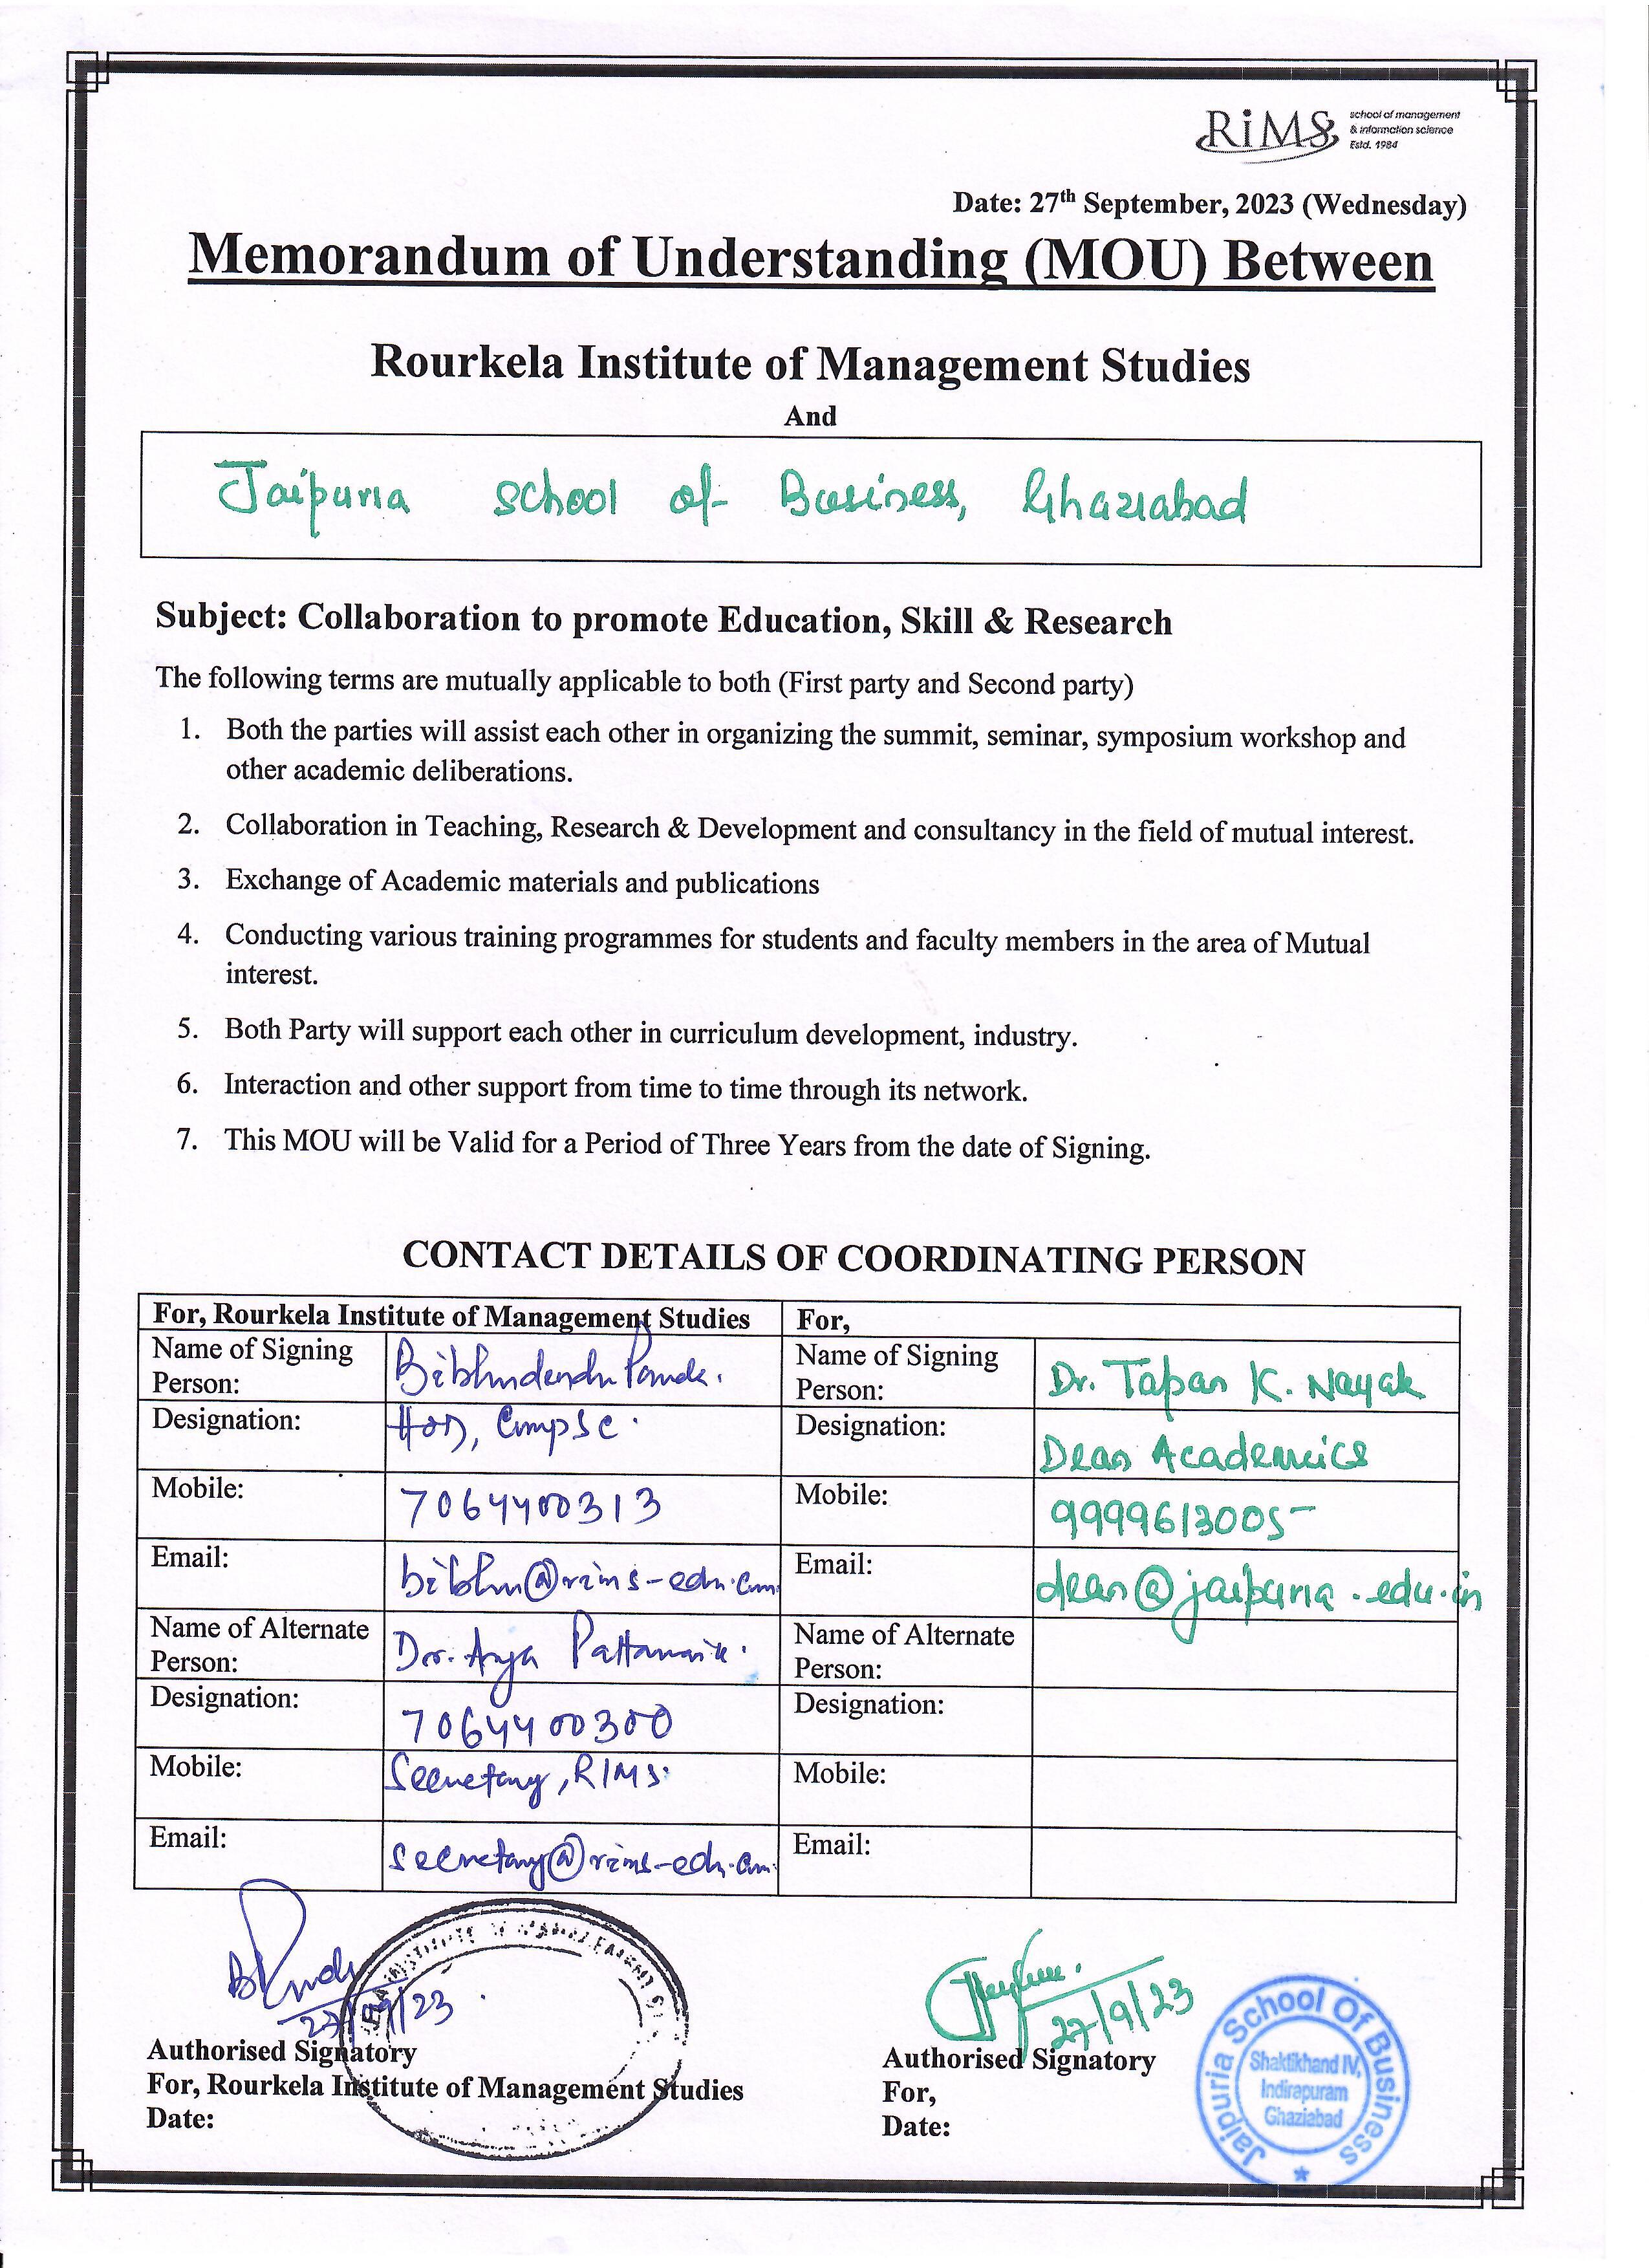 RiMS school of management
& information science
Estd. 1984
Date: 27th September, 2023 (Wednesday)
Memorandum of Understanding (MOU) Between
Rourkela Institute of Management Studies
And
Jaipuria School of Business, Ghaziabad
Subject: Collaboration to promote Education, Skill & Research
The following terms are mutually applicable to both (First party and Second party)
1. Both the parties will assist each other in organizing the summit, seminar, symposium workshop and
other academic deliberations.
2. Collaboration in Teaching, Research & Development and consultancy in the field of mutual interest.
3. Exchange of Academic materials and publications
4. Conducting various training programmes for students and faculty members in the area of Mutual
interest.
5. Both Party will support each other in curriculum development, industry.
6. Interaction and other support from time to time through its network.
7. This MOU will be Valid for a Period of Three Years from the date of Signing.
CONTACT DETAILS OF COORDINATING PERSON
For, Rourkela Institute of Management Studies For,
Name of Signing Person: Bibhudendu Panda. Name of Signing Person: Dr. Tapan K. Nayak
Designation: HOD, Comp Sc. Designation: Dean Academics
Mobile: 7064400313 Mobile: 9999613005
Email: bibhu@rims-edu.com Email: dean@jaipuria.edu.in
Name of Alternate Person: Dr. Arya Pattanaik. Name of Alternate Person:
Designation: 7064400300 Designation:
Mobile: Secretary, RIMS. Mobile:
Email: secretary@rims-edu.com Email:
27/09/23 27/9/23
Authorised Signatory Authorised Signatory
For, Rourkela Institute of Management Studies For,
Date: Date:
Jaipuria School Of Business
Shaktikhand IV,
Indirapuram
Ghaziabad